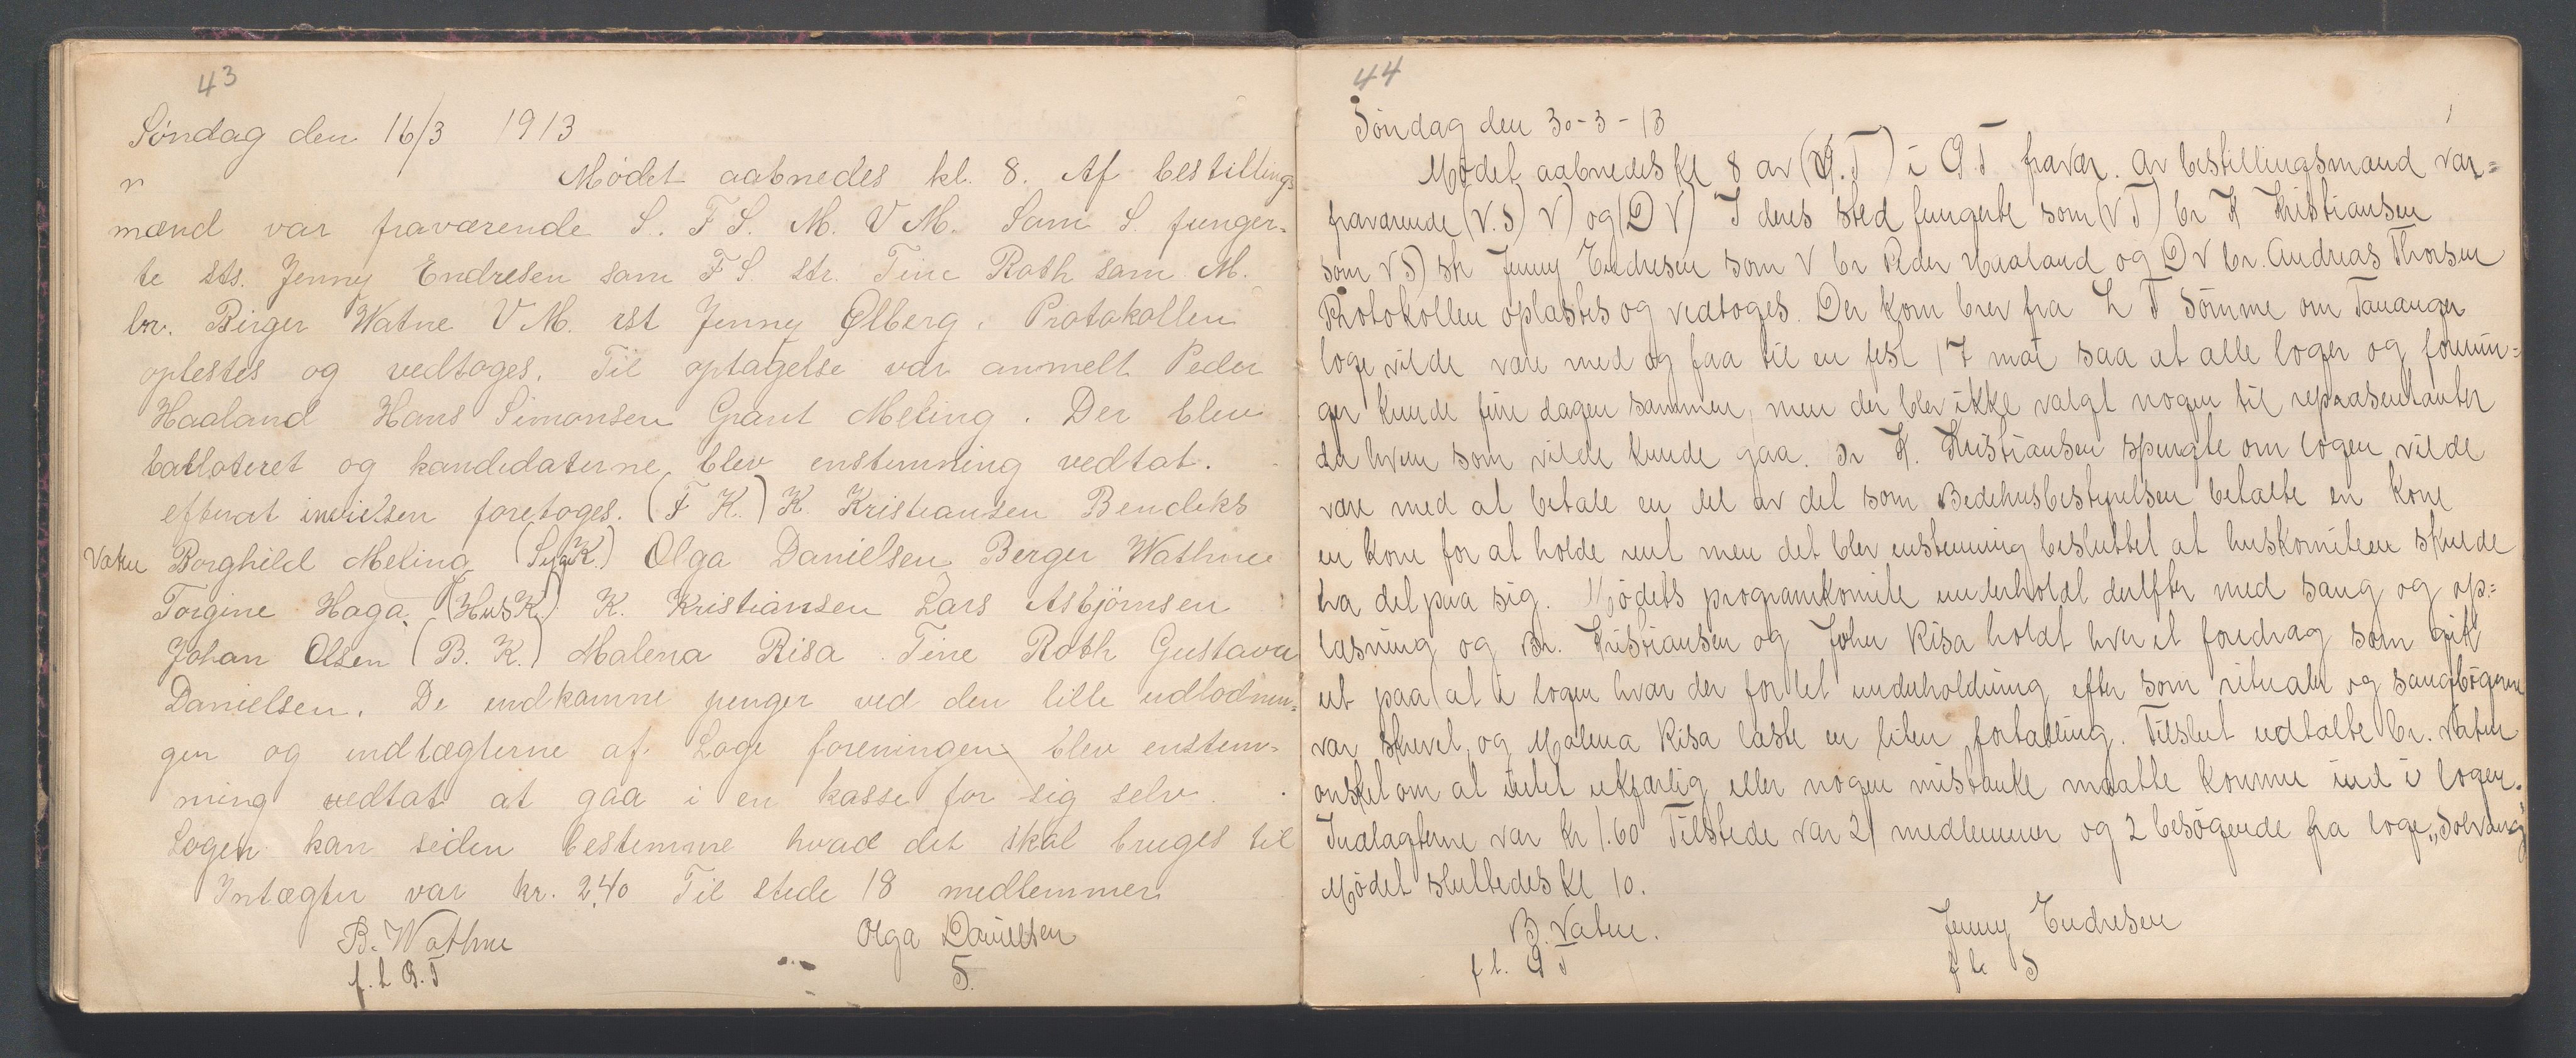 43
Søndag den 16/3 1913
Mødet aabnedes kl. 8. Af bestillings
mænd var fraværende S. F S. M. V M. Som S. funger-
te sts. Jenny Endresen som F S. str. Tine Roth som M.
br. Birger Watne V M. Jenny Ølberg. Protokollen
oplestes og vedtoges. Til optagelse var anmelt Peder
Haaland Hans Simonsen Grant Meling. Der blev
balloteret og kandidaterne blev enstemning vedtat.
efterat invielsen foretoges. (F K.) K. Kristiansen Bendiks
Vatne Borghild Meling (K.) Olga Danielsen Berger Wathne
Torgine Haga. (Hus K) K. Kristiansen Lars Asbjørnsen
Johan Olsen (B. K.) Malena Risa. Tine Roth Gustava
Danielsen. De indkomne penger ved den lille udlodnin-
gen og indtægterne af Loge foreningen blev enstem-
ning vedtat at gaa i en kasse for sig selv.
Logen kan siden bestemme hvad det skal bruges til
Intægter var kr. 2,40 Til stede 18 medlemmer
B. Wathne Olga Danielsen
f. L G. T S.
44
Søndag den 30-3-13
Mødet aabnedes kl 8 av (G.T) i G T fravær. Av bestillingsmænd var-
fraværende (V.S) V) og (D V) I deres sted fungerte som (V T) br K Kristiansen
som V S) str Jenny Endresen som V br Peder Haaland og D V br. Andreas Thorsen
Protokollen oplæstes og vedtoges. Der kom brev fra L T Sømme om Tananger
loge vilde være med og faa til en fest 17 mai saa at alle loger og forenin-
ger kunde feire dagen sammen, men der blev ikke valgt nogen til repræsentanter
da hvem som vilde kunde gaa. Br K. Kristiansen spurgte om logen vilde
være med at betale en del av det som Bedehusbestyrelsen betalte en kone
en kone for at holde rent men det blev enstemning besluttet at huskomiteen skulde
ta det paa sig. Mødets programkomite underholdt derefter med sang og op-
læsning og Br. Kristiansen og John Risa holdt hver et foredrag som gik
ut paa at i logen hvar der for let underholdning efter som ritualer og sangbøgene
var skrevet, og Malena Risa læste en liten fortælling. Tilslut udtalte br. Vatne
ønsket om at intet ukjærlig eller nogen mistanke maatte komme ind i logen.
Indtægterne var kr 1.60 Tilstede var 21 medlemmer og 2 besøgende fra loge „Solvang"
Mødet sluttedes kl 10.
B. Vatne. Jenny Endresen
f l. G T f le S